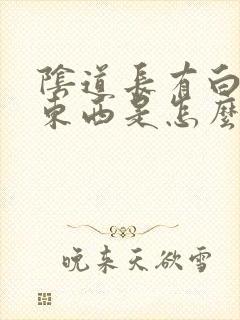 陰道長有白
東西是怎麼
晚来天欲雪